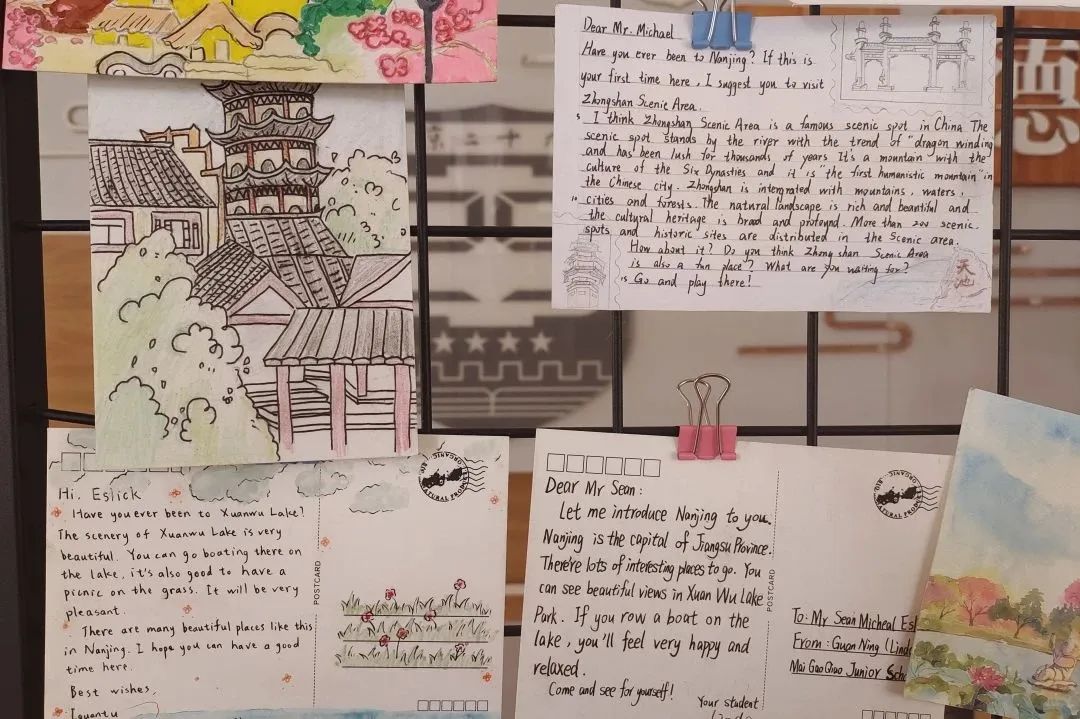 Dear Mr. Michael
Have you ever been to Nanjing? If this is
your first time here, I suggest you to visit
Zhongshan Scenic Area.
5 I think Zhongshan Scenic Area is a famous scenic spot in China The
scenic spot stands by the river with the trend of "dragon winding
and has been lush for thousands of years It's a mountain with the
culture of the Six Dynasties and it is "the first humanistic mountain" in
the Chinese city. Zhongshan is integrated with mountains, waters,
10 cities and forests. The natural landscape is rich and beautiful and
the cultural heritage is broad and profound. More than 200 scenic
spots and historic sites are distributed in the Scenic area.
How about it? Do you think Zhong shan Scenic Area
is also a fun place? What are you waiting for?
15 Go and play there!
天池
Hi. Eslick
Have you ever been to Xuanwu Lake?
The scenery of Xuanwu Lake is very
beautiful. You can go boating there on
the lake, it's also good to have a
picnic on the grass. It will be very
pleasant.
There are many beautiful places like this
in Nanjing. I hope you can have a good
time here.
Best wishes,
POSTCARD
Dear Mr Sean:
Let me introduce Nanjing to you.
Nanjing is the capital of Jiangsu Province.
There're lots of interesting places to go. You
can see beautiful views in Xuan Wu Lake
Park. If you row a boat on the
lake, you'll feel very happy and
relaxed.
Come and see for yourself!
Your student
POSTCARD
To: Mr Sean Micheal Esl
From: Guan Ning (Lind
Mai Gao Qiao Junior Scho